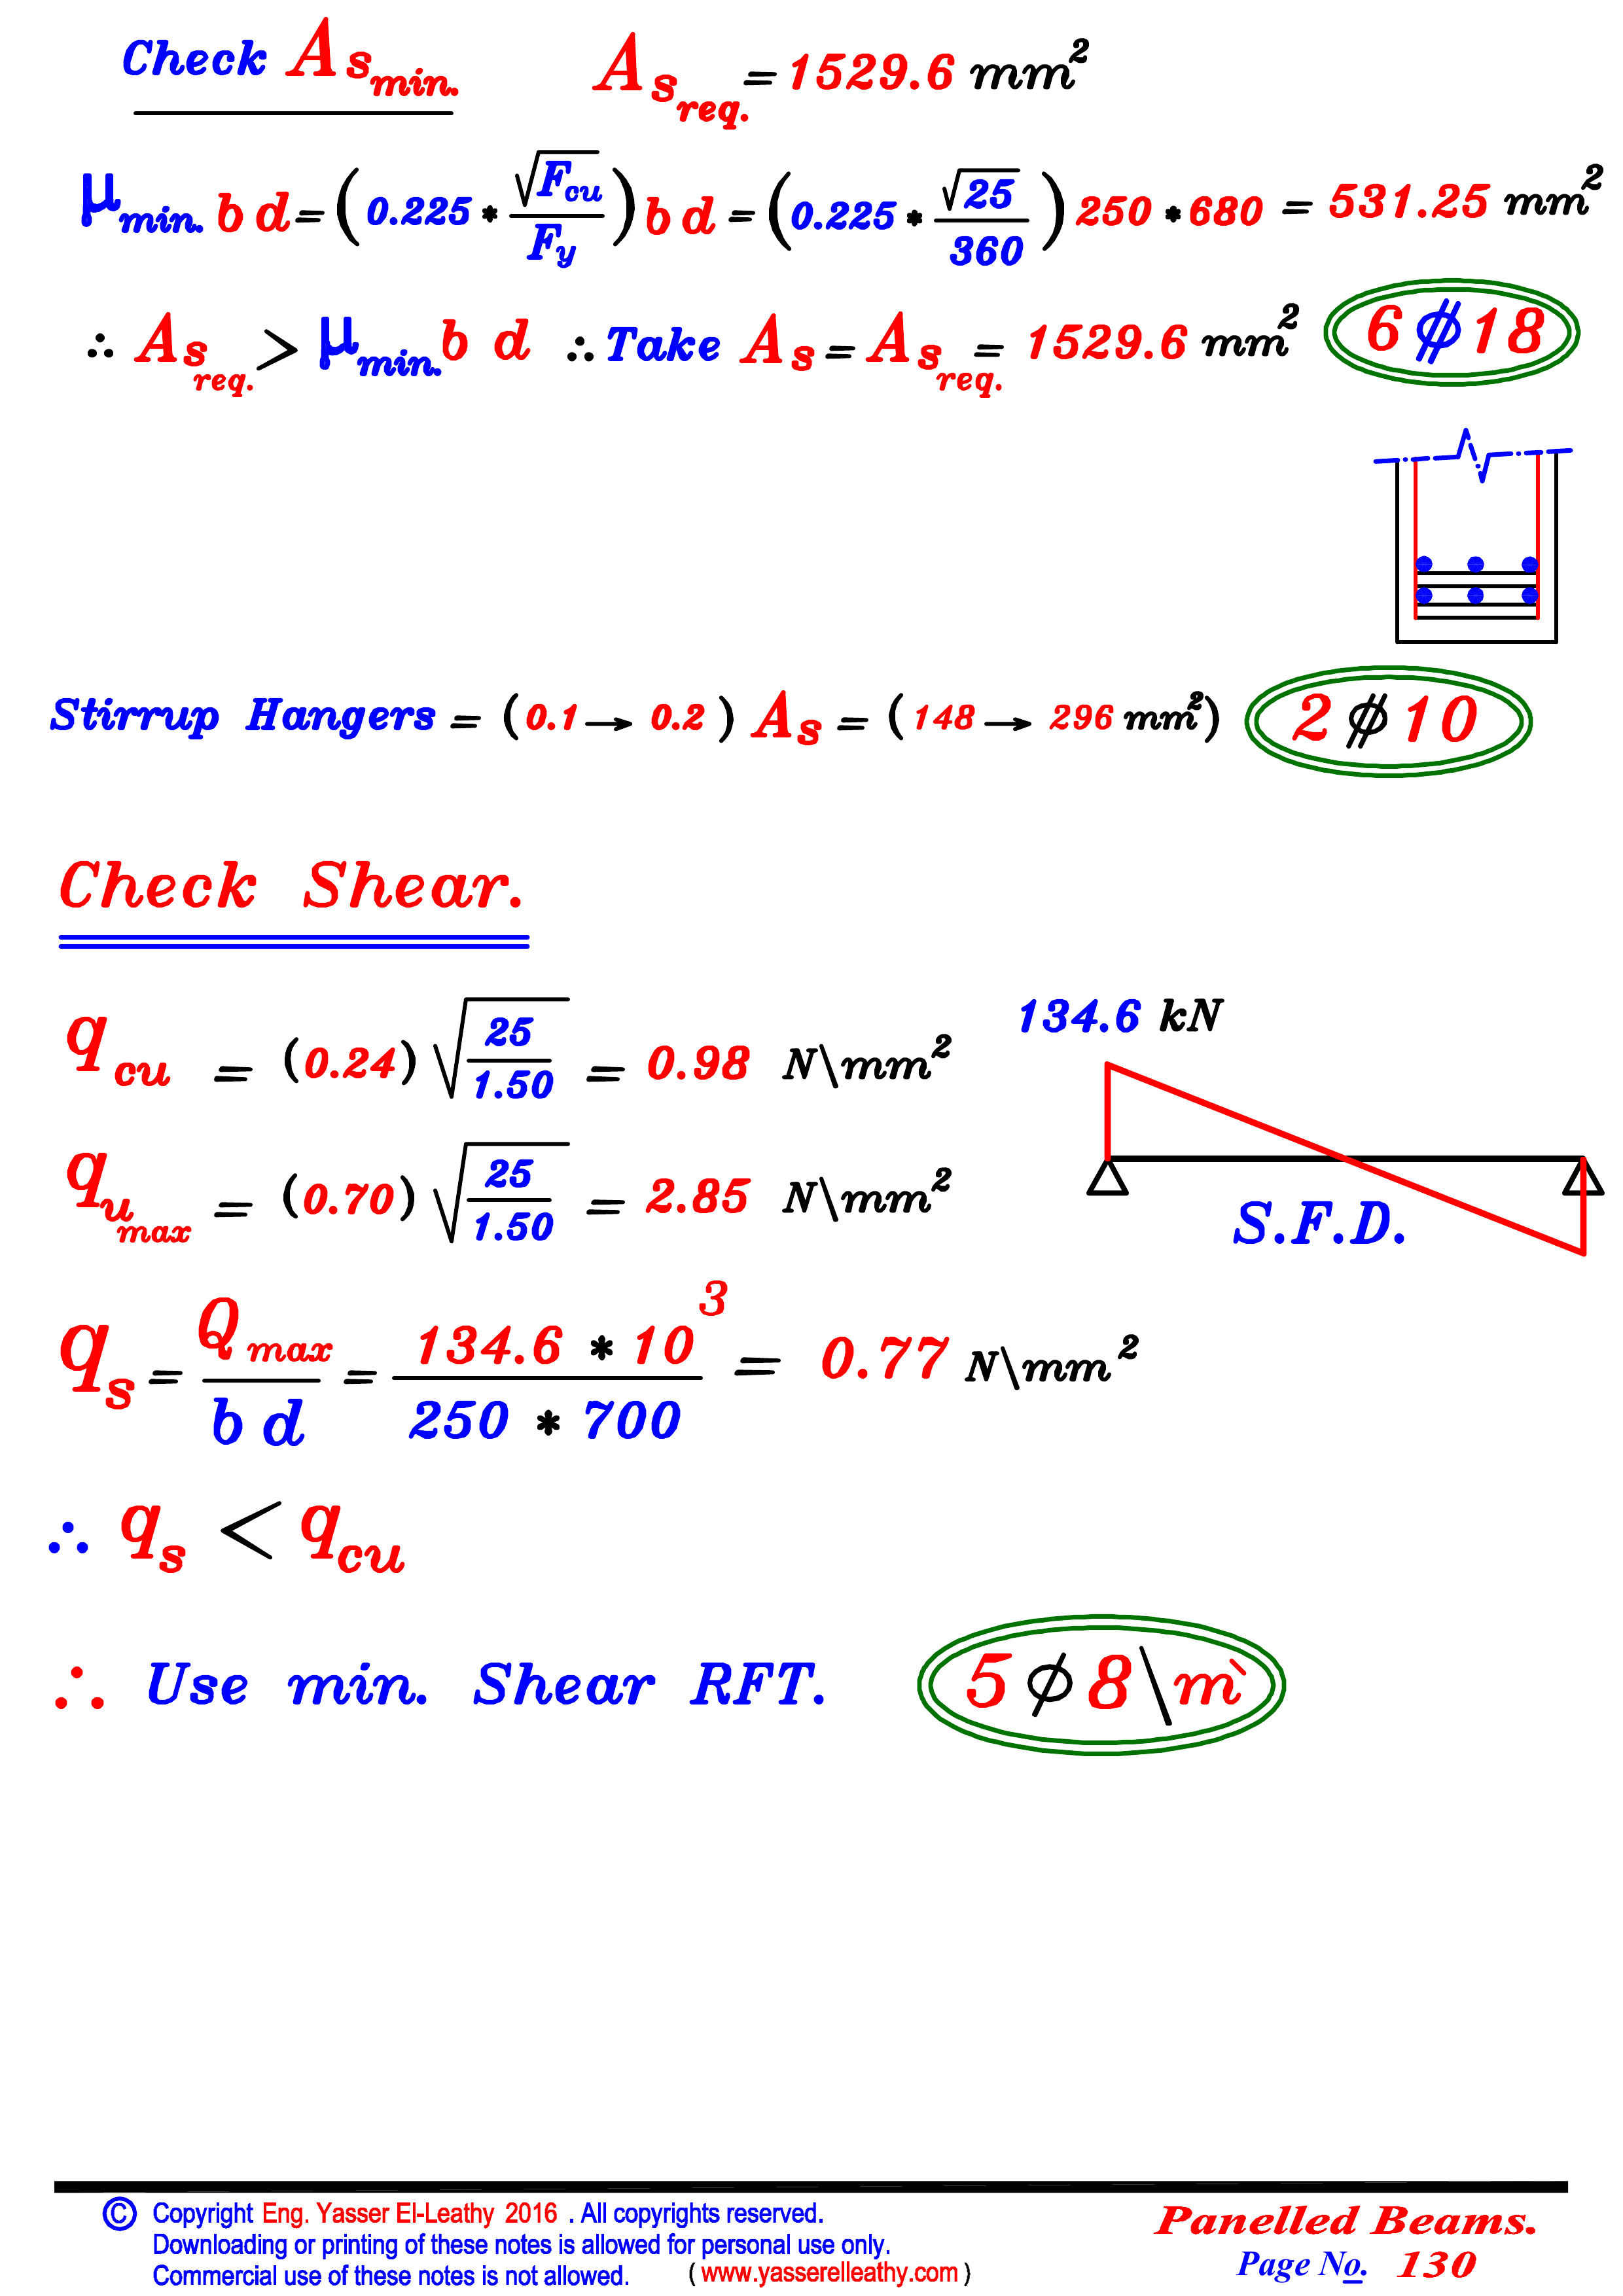 Check As min.    As req. = 1529.6 mm²
μ min. b d = ( 0.225 * √Fcu / Fy ) b d = ( 0.225 * √25 / 360 ) 250 * 680 = 531.25 mm²
∴ As req. > μ min. b d ∴ Take As = As req. = 1529.6 mm² 6 ⌀ 18
Stirrup Hangers = ( 0.1 → 0.2 ) As = ( 148 → 296 mm² ) 2 ⌀ 10
Check Shear.
q cu = (0.24) √(25 / 1.50) = 0.98 N\mm²
134.6 kN
q u max = (0.70) √(25 / 1.50) = 2.85 N\mm²
S.F.D.
q s = Q max / b d = 134.6 * 10³ / 250 * 700 = 0.77 N\mm²
∴ q s < q cu
∴ Use min. Shear RFT. 5 ϕ 8 \ m`
© Copyright Eng. Yasser El-Leathy 2016 . All copyrights reserved.
Downloading or printing of these notes is allowed for personal use only.
Commercial use of these notes is not allowed. ( www.yasserelleathy.com )
Panelled Beams.
Page No. 130